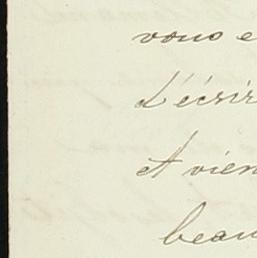 vous e
d'écrir
et vien
beau